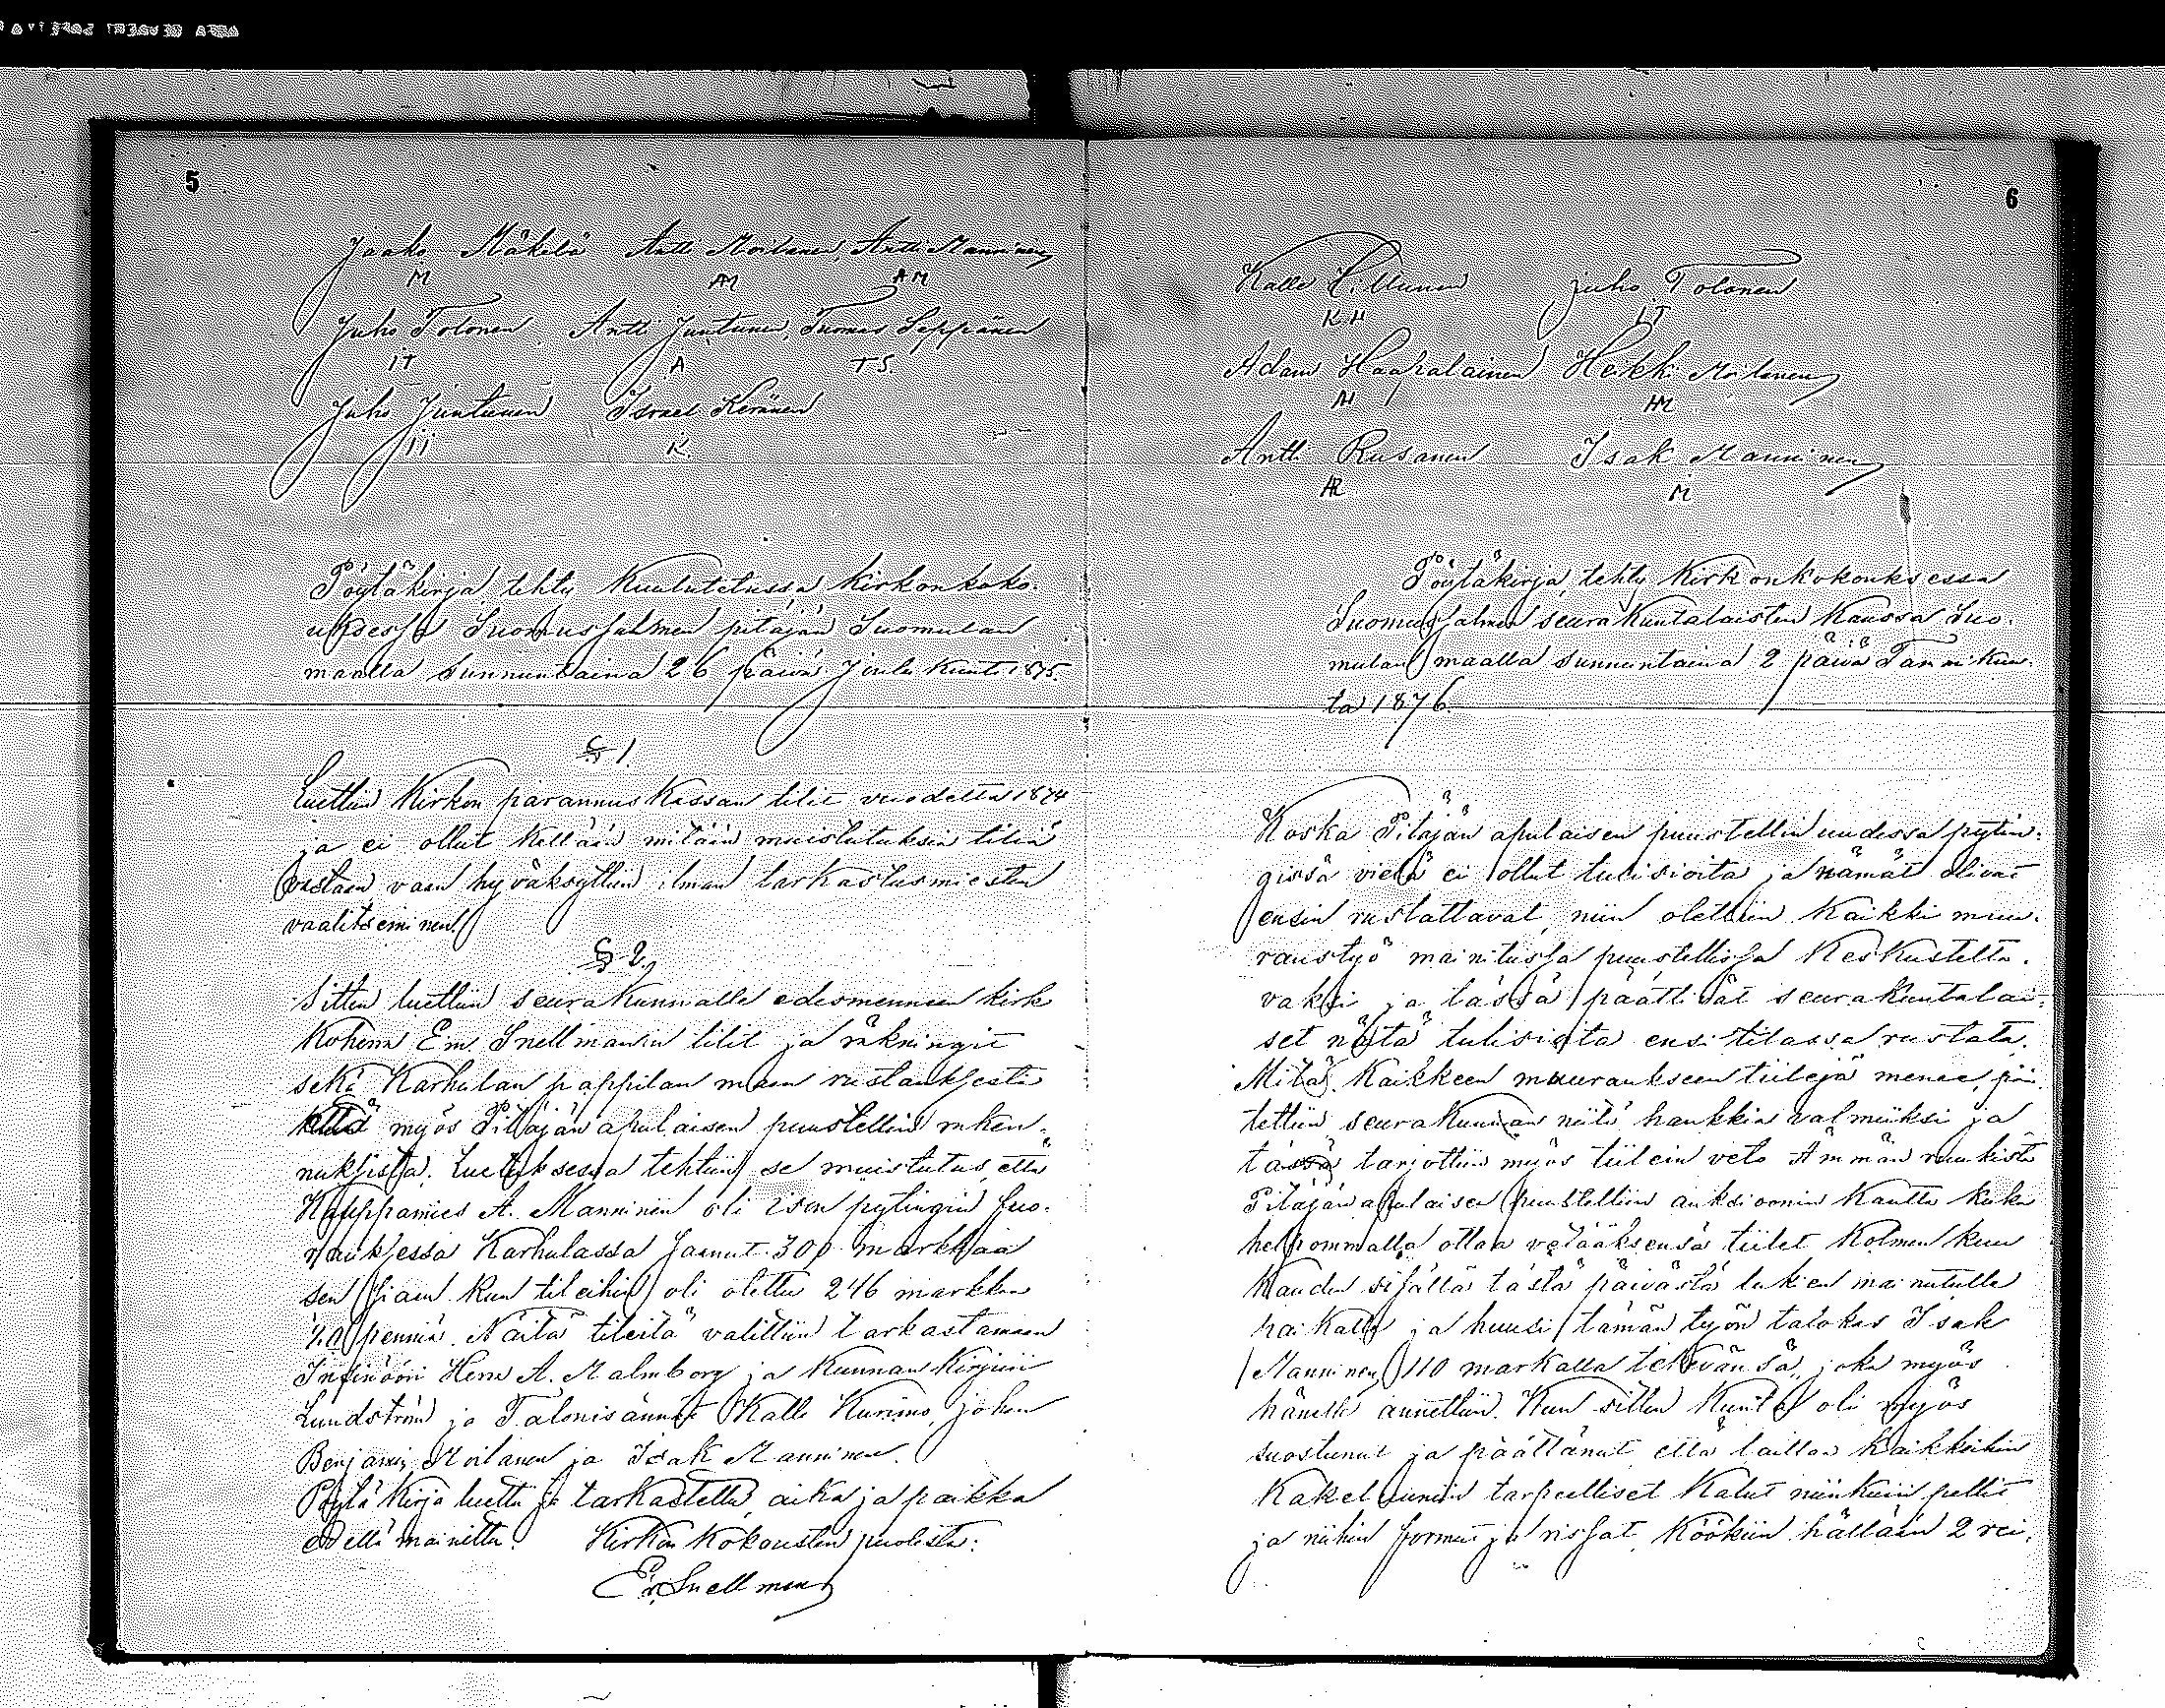 5
Jaako Mäkelä Antti Moilanen, Antti Manninen
M AM AM
Juho Tolonen Antti Juntunen, Tuomas Seppänen
IT A TS.
Juho Juntunen Israel Keränen
II K.
Pöytäkirja tehty Kuulutetussa Kirkonkoko-
uksessa Suomussalmen pitäjän Suomulan
maalla Sunnuntaina 26 päivä Joulu Kuuta 1875.
§ 1.
Luettiin Kirkon parannus Kassan tilit vuodelta 1874
ja ei ollut Kellään mitään muistutuksia tiliä
vastaan vaan hyväksyttiin ilman tarkastusmiesten
vaalitseminen.
§ 2,
Sitten luettiin seurakunnalle edesmennen kirk
Koherra Em. Snellmanin tilit ja räkningit
sekä Karhulan pappilan maan rustauksesta
että myös Pitäjän apulaisen puustellin raken-
nuksista. Luetuksessa tehtiin se muistutus, että
Kauppamies A. Manninen oli ison pytingin
Karhulassa saanut 300 markkaa
sen siaan kun tileihin oli otettu 246 markkaa
penniä. Näitä tileitä valittiin tarkastamaan
Insinööri Herra A. Malmborg ja Kunnan Kirjuri
Lundström ja Talonisännät Kalle Kurimo, johan
Benjamin Moilanen ja Isak Manninen.
Pöytä Kirja luettu ja tarkastettu aika ja paikka
edellä mainittu. Kirkon Kokousten puolesta:
Er. Snellman
6
Kalle Juho Tolonen
KH IT
Adam Haapalainen Heikki Moilanen
AH HM
Antti Rusanen Isak Manninen
AR M
Pöytäkirja, tehty Kirkonkokouksessa
Suomussalmen seurakuntalaisten Kanssa Suo-
mulan maalla sunnuntaina 2 päivä Tammikuu-
ta 1876.
Koska Pitäjän apulaisen puustellin uudessa pytin-
gissä vielä ei ollut tulisioita ja nämät olivat
ensin rustattavat, niin otettiin Kaikki muu-
raustyö mainitussa puustellissa Keskustelta-
vaksi ja tässä päättivät seurakuntalai-
set näitä tulisioita ensi tilassa rustata.
Mitä Kaikkeen muuraukseen tiilejä menee, pää
tettiin seurakunnan niitä hankkia valmiiksi ja
tässä tarjottiin myös tiilein veto Ämmän ruukista
Pitäjän apulaisen puustelliin auksioonin Kautta Kuka
helpommalla ottaa vetääksensä tiilet Kolmen kuu
Kauden sisällä tästä päivästä lukien mainitulle
paikalle ja huusi tämän työn talokas Isak
Manninen 110 markalla tekevänsä, joka myös
hänelle annettiin. Kun sitten Kunta oli myös
suostunut ja päättänyt että laittaa Kaikkihin
Kakel uuniin tarpeelliset Kalut niinkuin pellit
ja niihin formut ja rissat, Köökiin hällään 2 rei-